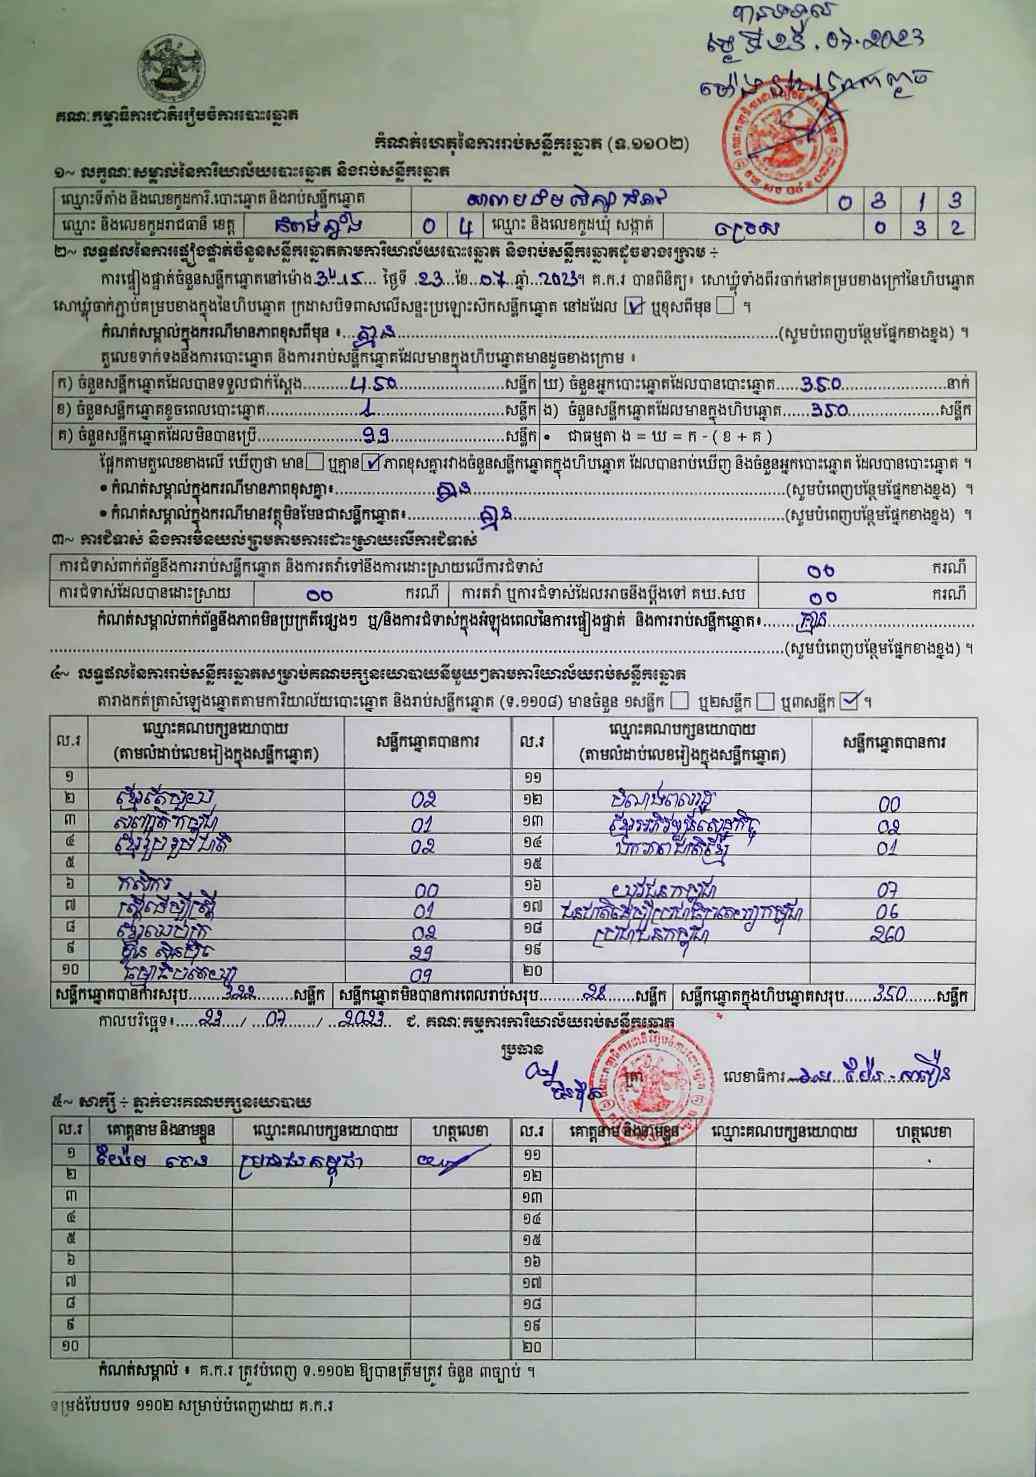 បានទទួល
គណៈកម្មាធិការជាតិរៀបចំការបោះឆ្នោត
កំណត់ហេតុនៃការរាប់សន្លឹកឆ្នោត (ទ.១១០២)
១~ លក្ខណៈសម្គាល់នៃការិយាល័យបោះឆ្នោត និងរាប់សន្លឹកឆ្នោត
ឈ្មោះទីតាំង និងលេខកូដការិ.បោះឆ្នោត និងរាប់សន្លឹកឆ្នោត 0 3 1 3
ឈ្មោះ និងលេខកូដរាជធានី ខេត្ត កំពង់ឆ្នាំង 0 4 ឈ្មោះ និងលេខកូដឃុំ សង្កាត់ ច្រេស 0 3 2
២~ លទ្ធផលនៃការផ្ទៀងផ្ទាត់ចំនួនសន្លឹកឆ្នោតតាមការិយាល័យបោះឆ្នោត និងរាប់សន្លឹកឆ្នោតដូចខាងក្រោម ÷
ការផ្ទៀងផ្ទាត់ចំនួនសន្លឹកឆ្នោតនៅម៉ោង 3:15 ថ្ងៃទី 23 ខែ 07 ឆ្នាំ 2023។ គ.ក.រ បានពិនិត្យ៖ សោឃ្លុំទាំងពីរចាក់នៅគម្របខាងក្រៅនៃហិបឆ្នោត
សោឃ្លុំចាក់ភ្ជាប់គម្របខាងក្នុងនៃហិបឆ្នោត ក្រដាសបិទពាសលើសន្ទះប្រឡោះស៊កសន្លឹកឆ្នោត នៅដដែល ✓ ឬខុសពីមុន ។
កំណត់សម្គាល់ក្នុងករណីមានភាពខុសពីមុន ៖ គ្មាន (សូមបំពេញបន្ថែមផ្នែកខាងខ្នង) ។
តួលេខទាក់ទងនឹងការបោះឆ្នោត និងការរាប់សន្លឹកឆ្នោតដែលមានក្នុងហិបឆ្នោតមានដូចខាងក្រោម ៖
ក) ចំនួនសន្លឹកឆ្នោតដែលបានទទួលជាក់ស្តែង 450 សន្លឹក ឃ) ចំនួនអ្នកបោះឆ្នោតដែលបានបោះឆ្នោត 350 នាក់
ខ) ចំនួនសន្លឹកឆ្នោតខូចពេលបោះឆ្នោត 1 សន្លឹក ង) ចំនួនសន្លឹកឆ្នោតដែលមានក្នុងហិបឆ្នោត 350 សន្លឹក
គ) ចំនួនសន្លឹកឆ្នោតដែលមិនបានប្រើ 99 សន្លឹក • ជាធម្មតា ង = ឃ = ក - ( ខ + គ )
ផ្អែកតាមតួលេខខាងលើ ឃើញថា មាន ឬគ្មាន ✓ ភាពខុសគ្នារវាងចំនួនសន្លឹកឆ្នោតក្នុងហិបឆ្នោត ដែលបានរាប់ឃើញ និងចំនួនអ្នកបោះឆ្នោត ដែលបានបោះឆ្នោត ។
• កំណត់សម្គាល់ក្នុងករណីមានភាពខុសគ្នា៖ គ្មាន (សូមបំពេញបន្ថែមផ្នែកខាងខ្នង) ។
• កំណត់សម្គាល់ក្នុងករណីមានវត្ថុមិនមែនជាសន្លឹកឆ្នោត៖ គ្មាន (សូមបំពេញបន្ថែមផ្នែកខាងខ្នង) ។
៣~ ការជំទាស់ និងការមិនយល់ព្រមតាមការដោះស្រាយលើការជំទាស់
ការជំទាស់ពាក់ព័ន្ធនឹងការរាប់សន្លឹកឆ្នោត និងការតវ៉ាទៅនឹងការដោះស្រាយលើការជំទាស់ 00 ករណី
ការជំទាស់ដែលបានដោះស្រាយ 00 ករណី ការតវ៉ា ឬការជំទាស់ដែលអាចនឹងប្តឹងទៅ គឃ.សប 00 ករណី
កំណត់សម្គាល់ពាក់ព័ន្ធនឹងភាពមិនប្រក្រតីផ្សេងៗ ឬ/និងការជំទាស់ក្នុងអំឡុងពេលនៃការផ្ទៀងផ្ទាត់ និងការរាប់សន្លឹកឆ្នោត៖ គ្មាន
(សូមបំពេញបន្ថែមផ្នែកខាងខ្នង) ។
៤~ លទ្ធផលនៃការរាប់សន្លឹកឆ្នោតសម្រាប់គណបក្សនយោបាយនីមួយៗតាមការិយាល័យរាប់សន្លឹកឆ្នោត
តារាងកត់ត្រាសំឡេងឆ្នោតតាមការិយាល័យបោះឆ្នោត និងរាប់សន្លឹកឆ្នោត (ទ.១១០៨) មានចំនួន ១សន្លឹក ឬ២សន្លឹក ឬ៣សន្លឹក ✓ ។
ល.រ ឈ្មោះគណបក្សនយោបាយ (តាមលំដាប់លេខរៀងក្នុងសន្លឹកឆ្នោត) សន្លឹកឆ្នោតបានការ ល.រ ឈ្មោះគណបក្សនយោបាយ (តាមលំដាប់លេខរៀងក្នុងសន្លឹកឆ្នោត) សន្លឹកឆ្នោតបានការ
១ ១១
២ ខ្មែរតែមួយ 02 ១២ 00
៣ សញ្ជាតិកម្ពុជា 01 ១៣ ខ្មែរអភិវឌ្ឍន៍សេដ្ឋកិច្ច 02
៤ ខ្មែររួបរួមជាតិ 02 ១៤ ឯកភាពជាតិខ្មែរ 01
៥ ១៥
៦ កសិករ 00 ១៦ យុវជនកម្ពុជា 07
៧ ស្ត្រីដើម្បីស្ត្រី 01 ១៧ ជនជាតិដើមប្រជាធិបតេយ្យកម្ពុជា 06
៨ 02 ១៨ ប្រជាជនកម្ពុជា 260
៩ ហ្វ៊ុនស៊ិនប៉ិច 29 ១៩
១០ ធម្មាធិបតេយ្យ 09 ២០
សន្លឹកឆ្នោតបានការសរុប 322 សន្លឹក សន្លឹកឆ្នោតមិនបានការពេលរាប់សរុប 28 សន្លឹក សន្លឹកឆ្នោតក្នុងហិបឆ្នោតសរុប 350 សន្លឹក
កាលបរិច្ឆេទ៖ 23 / 07 / 2023 ជ. គណៈកម្មការការិយាល័យរាប់សន្លឹកឆ្នោត
ប្រធាន ត្រា លេខាធិការ
៥~ សាក្សី ÷ ភ្នាក់ងារគណបក្សនយោបាយ
ល.រ គោត្តនាម និងនាមខ្លួន ឈ្មោះគណបក្សនយោបាយ ហត្ថលេខា ល.រ គោត្តនាម និងនាមខ្លួន ឈ្មោះគណបក្សនយោបាយ ហត្ថលេខា
១ ប្រជាជនកម្ពុជា ១១
២ ១២
៣ ១៣
៤ ១៤
៥ ១៥
៦ ១៦
៧ ១៧
៨ ១៨
៩ ១៩
១០ ២០
កំណត់សម្គាល់ ៖ គ.ក.រ ត្រូវបំពេញ ទ.១១០២ ឱ្យបានត្រឹមត្រូវ ចំនួន ៣ច្បាប់ ។
ទម្រង់បែបបទ ១១០២ សម្រាប់បំពេញដោយ គ.ក.រ